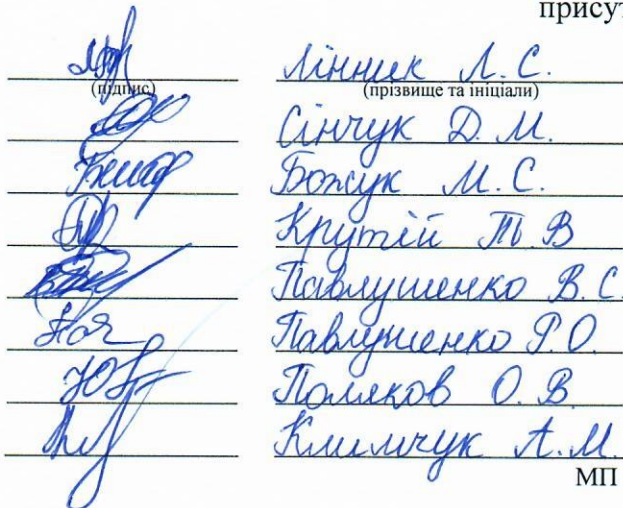 присут
Лінник Л. С.
(підпис) (прізвище та ініціали)
Сінчук Д. М.
Божук М. С.
Крутій Т. В
Павлушенко В. С.
Павлушенко Р. О.
Поляков О. В.
Климчук А. М.
МП